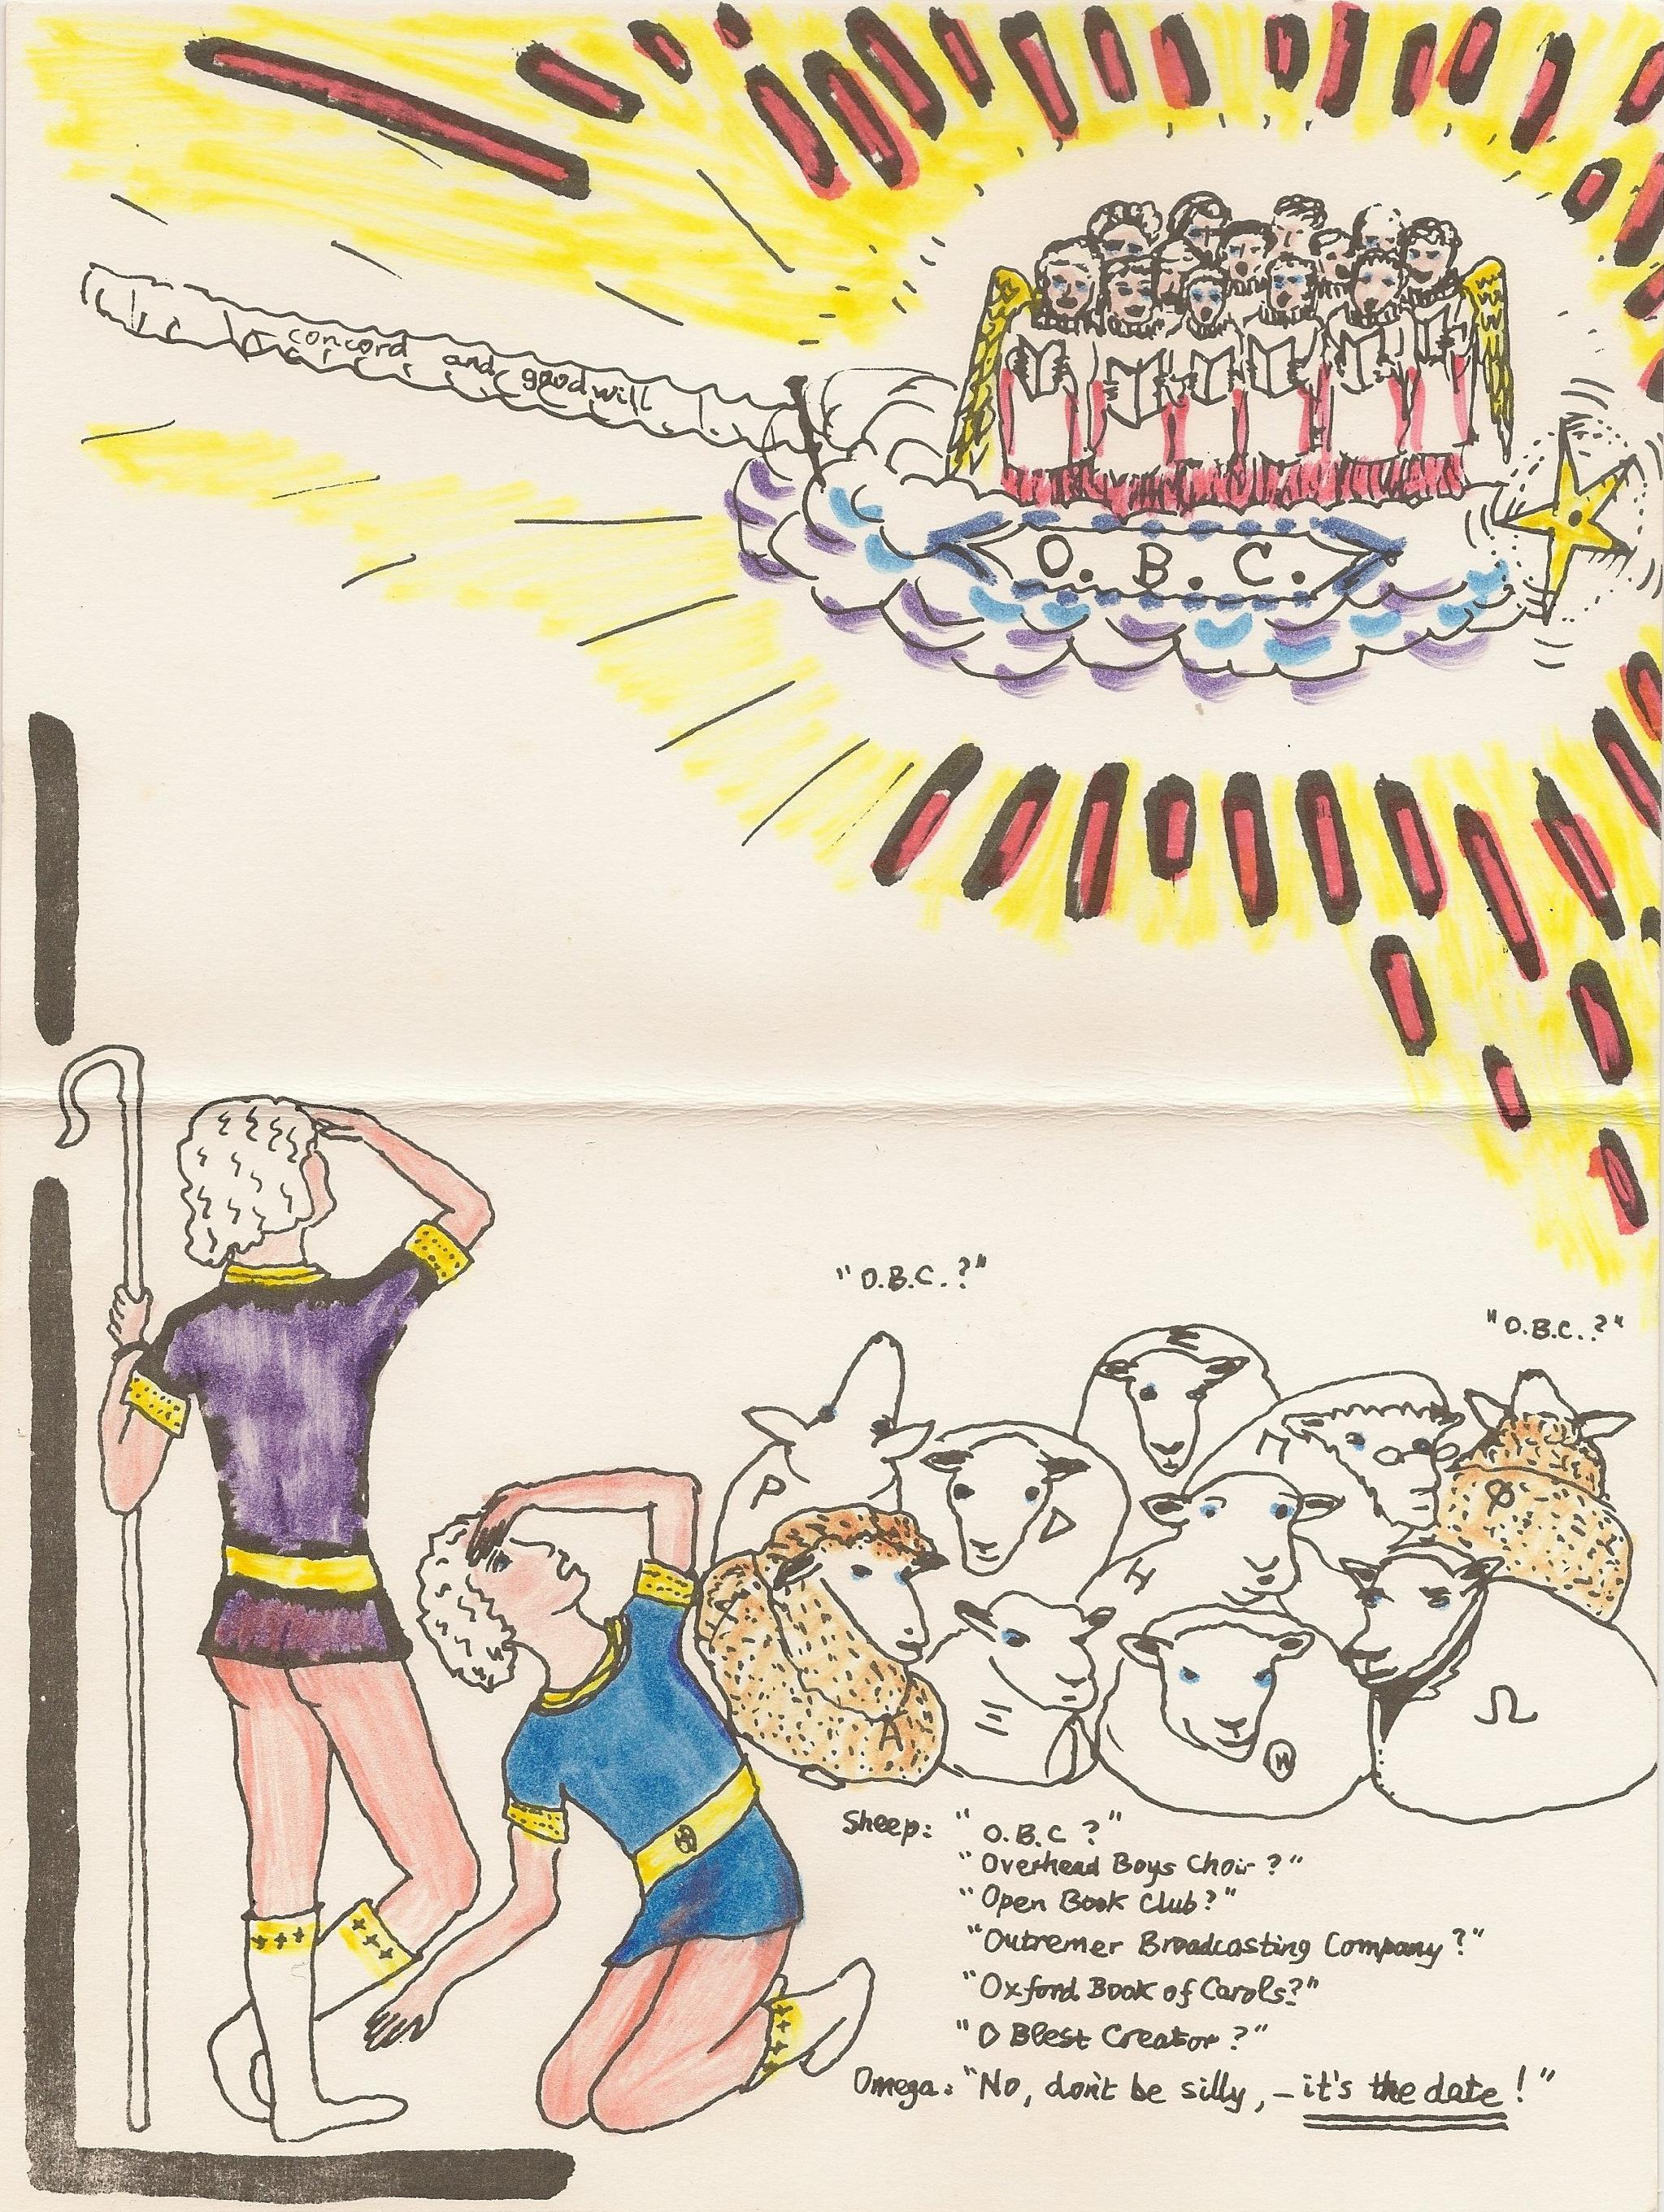 concord and goodwill
O. B. C.
"O.B.C.?"
"O.B.C.?"
P
Δ
Π
Φ
H
A
Ξ
W
Ω
Sheep: "O.B.C ?"
"Overhead Boys Choir ?"
"Open Book Club?"
"Outremer Broadcasting Company ?"
"Oxford Book of Carols?"
"O Blest Creator ?"
Omega: "No, don't be silly, – it's the date ! "